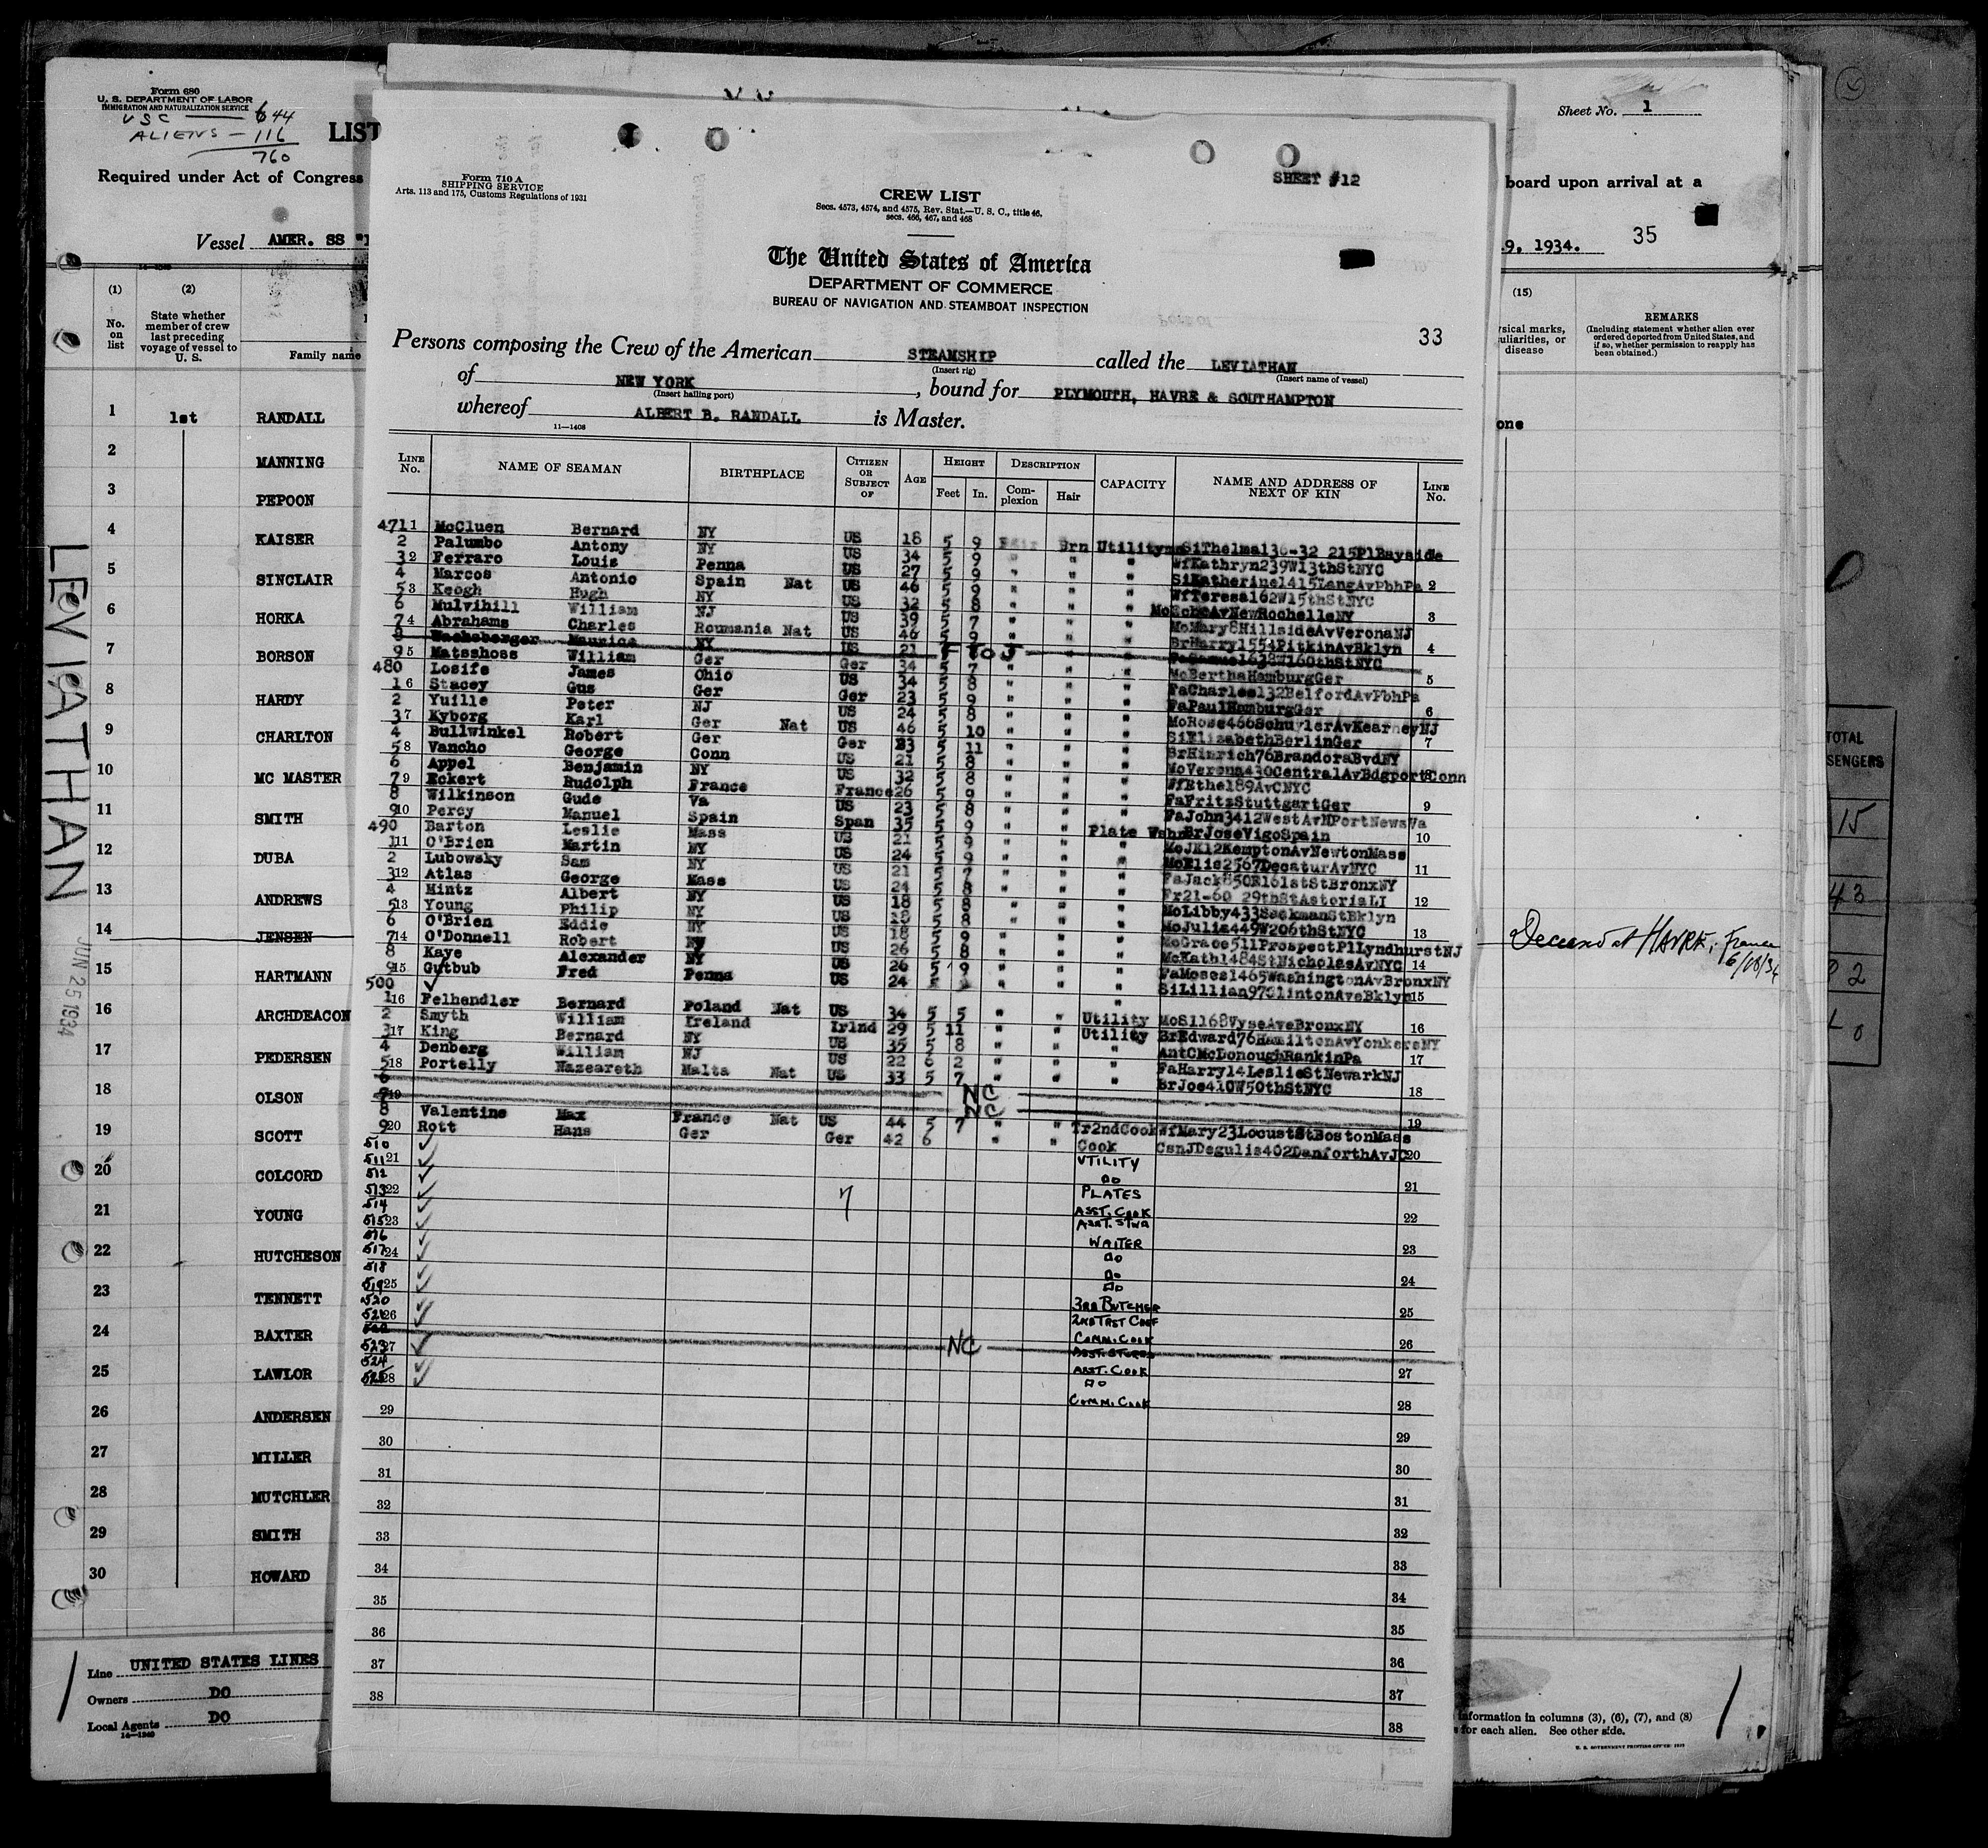 Form 680
U. S. DEPARTMENT OF LABOR
IMMIGRATION AND NATURALIZATION SERVICE
USC — 644
ALIENS — 116
760
LIST
Required under Act of Congress
Vessel AMER. SS
(1) (2)
No. on list
State whether member of crew last preceding voyage of vessel to U. S.
Family name
1 1st RANDALL
2 MANNING
3 PEPOON
4 KAISER
5 SINCLAIR
6 HORKA
7 BORSON
8 HARDY
9 CHARLTON
10 MC MASTER
11 SMITH
12 DUBA
13 ANDREWS
14 JENSEN
15 HARTMANN
16 ARCHDEACON
17 PEDERSEN
18 OLSON
19 SCOTT
20 COLCORD
21 YOUNG
22 HUTCHESON
23 TENNETT
24 BAXTER
25 LAWLOR
26 ANDERSEN
27 MILLER
28 MUTCHLER
29 SMITH
30 HOWARD
LEVIATHAN
JUN 25 1934
Line UNITED STATES LINES
Owners DO
Local Agents DO
14—1240
Form 710 A
SHIPPING SERVICE
Arts. 113 and 175, Customs Regulations of 1931
SHEET #12
CREW LIST
Secs. 4573, 4574, and 4575, Rev. Stat.—U. S. C., title 46,
secs. 466, 467, and 468
The United States of America
DEPARTMENT OF COMMERCE
BUREAU OF NAVIGATION AND STEAMBOAT INSPECTION
33
Persons composing the Crew of the American STEAMSHIP called the LEVIATHAN
(Insert rig) (Insert name of vessel)
of NEW YORK, bound for PLYMOUTH, HAVRE & SOUTHAMPTON
(Insert hailing port)
whereof ALBERT B. RANDALL is Master.
11—1408
LINE No. NAME OF SEAMAN BIRTHPLACE CITIZEN OR SUBJECT OF AGE HEIGHT DESCRIPTION CAPACITY NAME AND ADDRESS OF NEXT OF KIN LINE No.
Feet In. Complexion Hair
471 1 McCluen Bernard NY US 18 5 9 Fair Brn Utilityman SiThelma136-32 215PlBayside
2 Palumbo Antony NY US 34 5 9 " " " WfKathryn239W13thStNYC
3 2 Ferraro Louis Penna US 27 5 9 " " " SiKatherine1415LangAvPbhPa 2
4 Marcos Antonio Spain Nat US 46 5 9 " " " WfTeresa162W15thStNYC
5 3 Keogh Hugh NY US 32 5 8 " " MoEchoAvNewRochelleNY 3
6 Mulvihill William NJ US 39 5 7 " " " MoMary8HillsideAvVeronaNJ
7 4 Abrahams Charles Roumania Nat US 46 5 9 " " " BrHarry1554PitkinAvBklyn 4
8 Wachsberger Maurice NY US 21 FTOJ FaSamuel638W160thStNYC
9 5 Matsshoss William Ger Ger 34 5 7 " " " MoBerthaHamburgGer 5
480 Losife James Ohio US 34 5 8 " " " FaCharles132BelfordAvPbhPa
1 6 Stacey Gus Ger Ger 23 5 9 " " " FaPaulHamburgGer 6
2 Yuille Peter NJ US 24 5 8 " " " MoRose466SchuylerAvKearneyNJ
3 7 Kyborg Karl Ger Nat US 46 5 10 " " " SiElizabethBerlinGer 7
4 Bullwinkel Robert Ger Ger 23 5 11 " " " BrHinrich76BrandoraBvdNY
5 8 Vancho George Conn US 21 5 8 " " " MoVerona430CentralAvBdgportConn
6 Appel Benjamin NY US 32 5 8 " " " WfEthel89AvCNYC
7 9 Eckert Rudolph France France 26 5 9 " " " FaFritzStuttgartGer 9
8 Wilkinson Gude Va US 23 5 8 " " " FaJohn3412WestAvNPortNewsVa
9 10 Percy Manuel Spain Span 35 5 9 " " Plate Wshr BrJoseVigoSpain 10
490 Barton Leslie Mass US 21 5 9 " " " MoJK12KemptonAvNewtonMass
1 11 O'Brien Martin NY US 24 5 9 " " " MoElis2567DecaturAvNYC 11
2 Lubowsky Sam NY US 21 5 7 " " " FaJack850E161stStBronxNY
3 12 Atlas George Mass US 24 5 8 " " " Fr21-60 29thStAstoriaLI 12
4 Mintz Albert NY US 18 5 8 " " " MoLibby433SackmanStBklyn
5 13 Young Philip NY US 18 5 8 " " " MoJulia449W206thStNYC 13
6 O'Brien Eddie NY US 18 5 9 " " " MoGrace511ProspectPlLyndhurstNJ
7 14 O'Donnell Robert NY US 26 5 8 " " " McKath1484StNicholasAvNYC 14
8 Kaye Alexander NY US 26 5 9 " " " FaMoses1465WashingtonAvBronxNY
9 15 Gutbub Fred Penna US 24 " " " SiLillian97ClintonAveBklyn 15
500 ✓
1 16 Felhendler Bernard Poland Nat US 34 5 5 " " Utility MoS1168VyseAveBronxNY 16
2 Smyth William Ireland Irlnd 29 5 11 " " Utility BrEdward76HamiltonAvYonkersNY
3 17 King Bernard NY US 35 5 8 " " " AntCMcDonoughRankinPa 17
4 Denberg William NJ US 22 6 2 " " " FaHarry14LeslieStNewarkNJ
5 18 Portelly Nazeareth Malta Nat US 33 5 7 " " " BrJoe410W50thStNYC 18
6 NC
7 19 NC 19
8 Valentine Max France Nat US 44 5 7 " " Tr2ndCook WfMary23LocustStBostonMass
9 20 Rott Hans Ger Ger 42 6 " " Cook CsnJDegulis402DanforthAvJC 20
510 ✓ UTILITY
511 21 ✓ DO 21
512 ✓ PLATES
513 22 ✓ ASST. COOK 22
514 ✓ ASST. STWD
515 23 ✓ WAITER 23
516 ✓ DO
517 24 ✓ DO 24
518 ✓ DO
519 25 ✓ 3RD BUTCHER 25
520 ✓
521 26 ✓ COMM. COOK 26
522 NC
523 27 ✓ ASST. COOK 27
524 ✓ DO
525 28 ✓ COMM. COOK 28
29 29
30 30
31 31
32 32
33 33
34 34
35 35
36 36
37 37
38 38
Sheet No. 1
board upon arrival at a
9, 1934.
35
(15)
REMARKS
(Including statement whether alien ever ordered deported from United States, and if so, whether permission to reapply has been obtained.)
ysical marks,
uliarities, or
disease
one
Deceased at HAVRE, France
6/18/34
TOTAL
SENGERS
15
43
2
0
information in columns (3), (6), (7), and (8)
for each alien. See other side.
U. S. GOVERNMENT PRINTING OFFICE
1